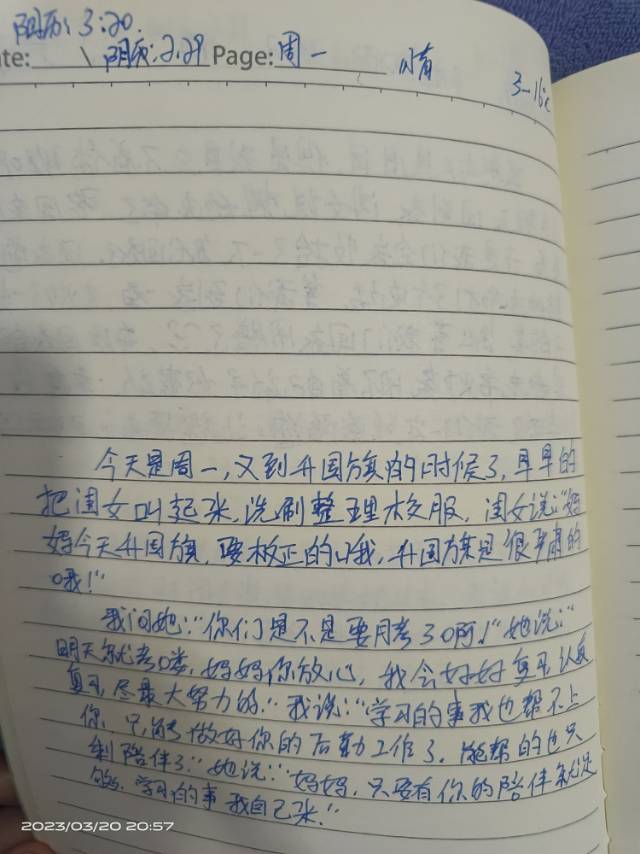 阳历:3:20.
ate: 阴历:2.29 Page:周一 晴 3-16℃
今天是周一,又到升国旗的时候了,早早的
把闺女叫起来,洗刷整理校服,闺女说:"妈
妈今天升国旗,要板正的哦,升国旗是很严肃的
哦!"
我问她:"你们是不是要月考了啊!"她说:"
明天就考喽,妈妈你放心,我会好好复习认真
复习,尽最大努力的."我说:"学习的事我也帮不上
你,只能做好你的后勤工作了,能帮的也只
剩陪伴了."她说:"妈妈,只要有你的陪伴就足
够,学习的事我自己来."
2023/03/20 20:57